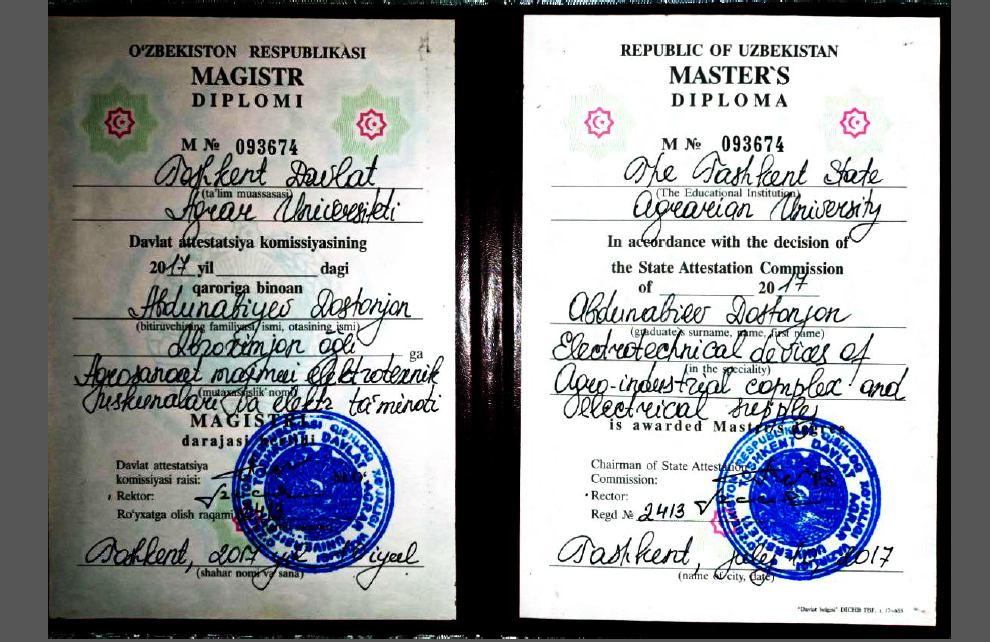 O'ZBEKISTON RESPUBLIKASI
MAGISTR
DIPLOMI
M № 093674
Toshkent Davlat
(ta'lim muassasasi)
Agrar Universiteti
Davlat attestatsiya komissiyasining
2017 yil dagi
qaroriga binoan
Abdunabiyev Dostonjon
(bitiruvchining familiyasi, ismi, otasining ismi)
Ibroximjon o'g'li
ga
Agrosanoat majmui elektrotexnik
(mutaxassislik nomi)
uskunalari va elektr ta'minoti
MAGISTRI
darajasi berildi
Davlat attestatsiya
komissiyasi raisi:
M.O'.
Rektor:
Ro'yxatga olish raqami 2413
Toshkent, 2017 yil iyul
(shahar nomi va sana)
REPUBLIC OF UZBEKISTAN
MASTER`S
DIPLOMA
M № 093674
The Tashkent State
(The Educational Institution)
Agrarian University
In accordance with the decision of
the State Attestation Commission
of 2017
Abdunabiev Dostonjon
(graduate's surname, name, first name)
Electrotechnical devices of
(in the speciality)
Agro-industrial complex and
electrical supply
is awarded Master's degree
Chairman of State Attestation
Commission:
Rector:
Regd № 2413
Tashkent, july 2017
(name of city, date)
"Davlat belgisi" DICHB TBF. z. 17-605